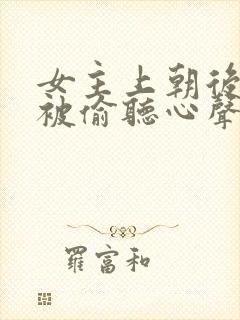 女主上朝後
被偷聽心聲
羅富和